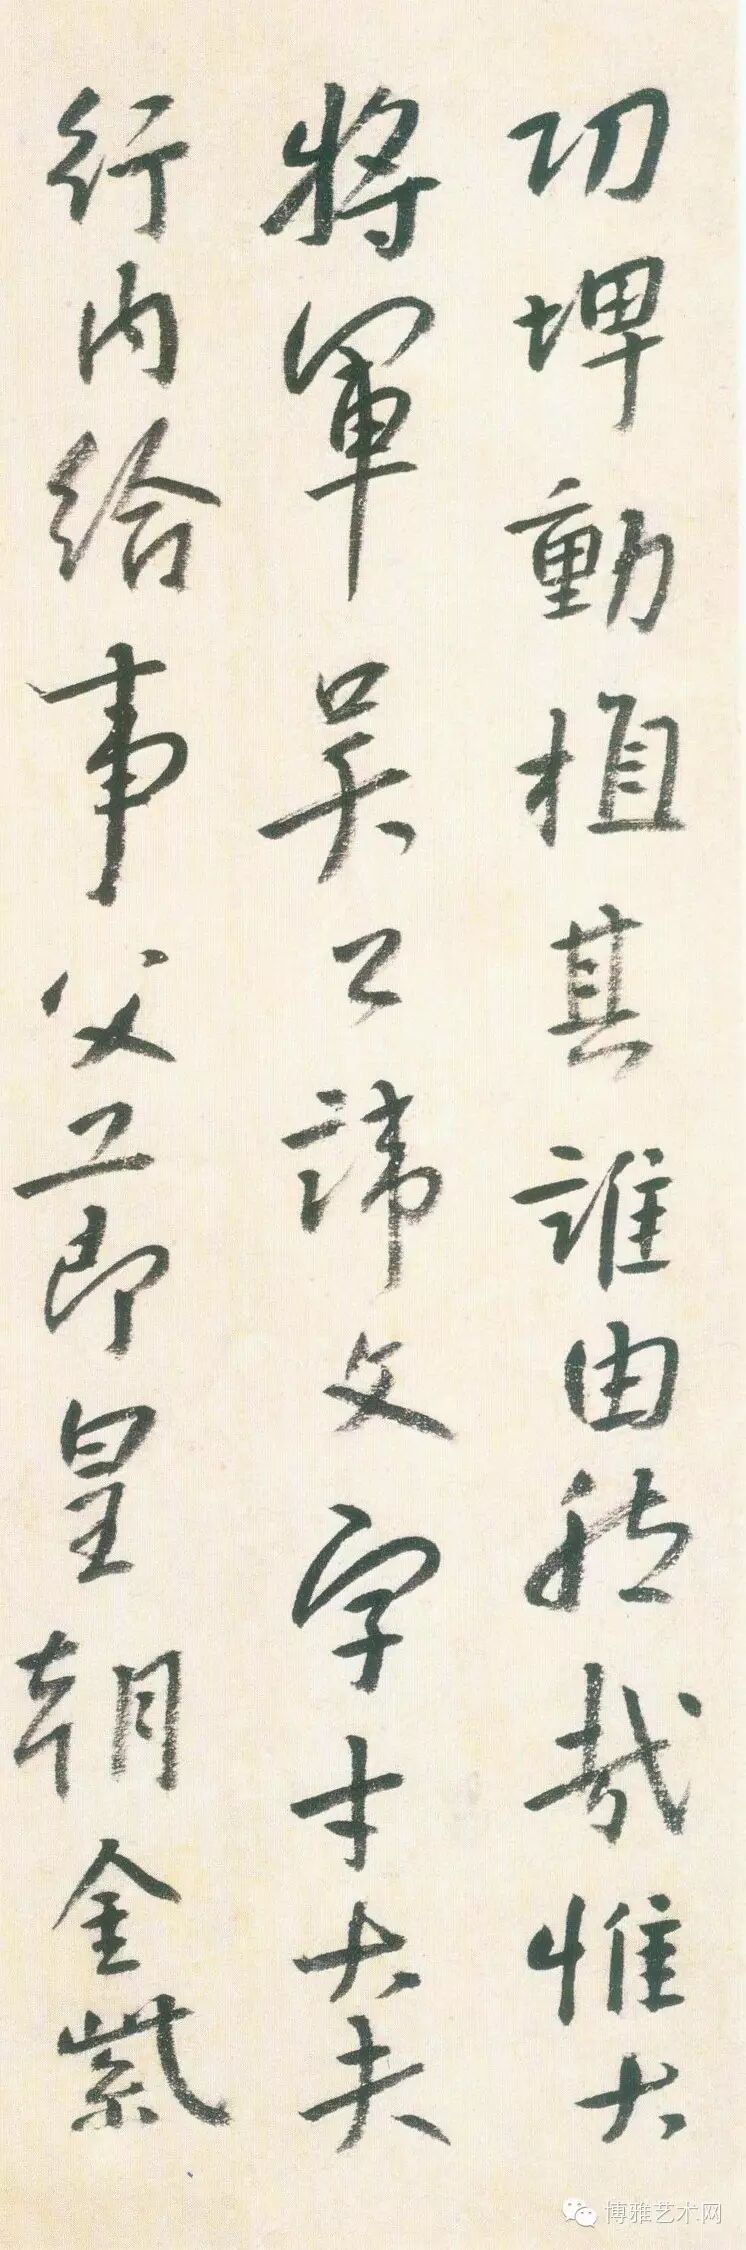 功埤動植其誰由能哉惟大
將軍吴公諱文字才大夫
行内給事父工即皇朝金紫
博雅艺术网